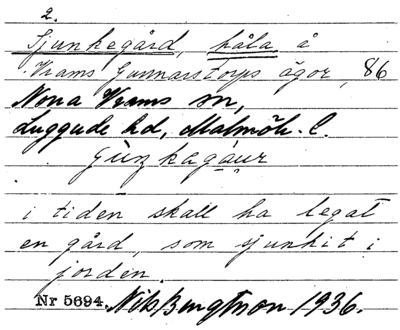 2.
Sjunkegård, håla å
Vrams Gunnarstorps ägor, 86
Norra Vrams sn,
Luggude hd, Malmöh. l.
i tiden skall ha legat
en gård, som sjunkit i
jorden.
Nr 5694. Nils Bengtsson 1936.